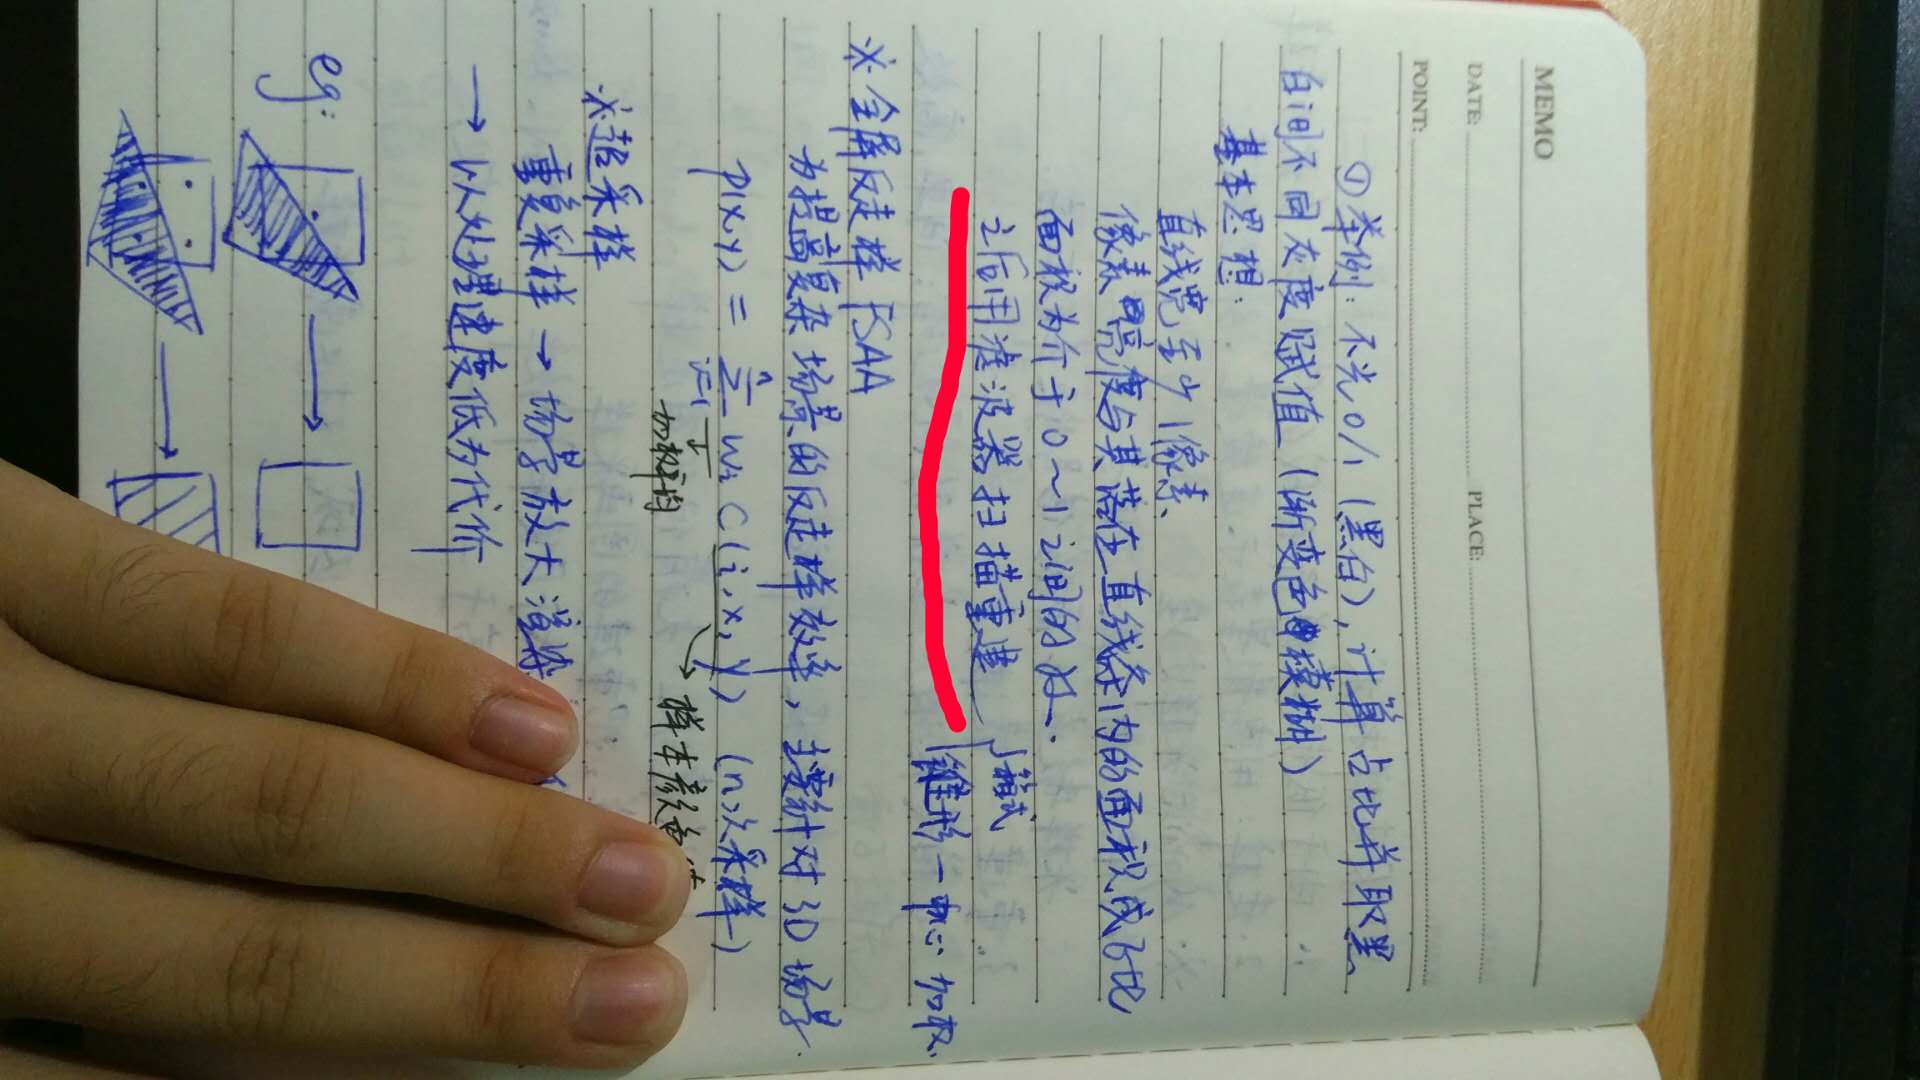 MEMO
DATE: PLACE:
POINT:
①举例：不光0/1（黑白），计算占比并取黑
白间不同灰度赋值（渐变色模糊）
基本思想：
直线宽至少1像素
像素亮度与其落在直线条内的面积成正比
面积为介于0~1之间的数.
之后用滤波器扫描重建 箱式
锥形—中心加权.
※全屏反走样 FSAA
为提高复杂场景的反走样效率，主要针对3D场景.
p(x,y) = n∑i=1 wi C(i,x,y) （n次采样）
加权平均 样本颜色
※超采样
重复采样 → 场景放大渲染
→ 以处理速度低为代价
eg: